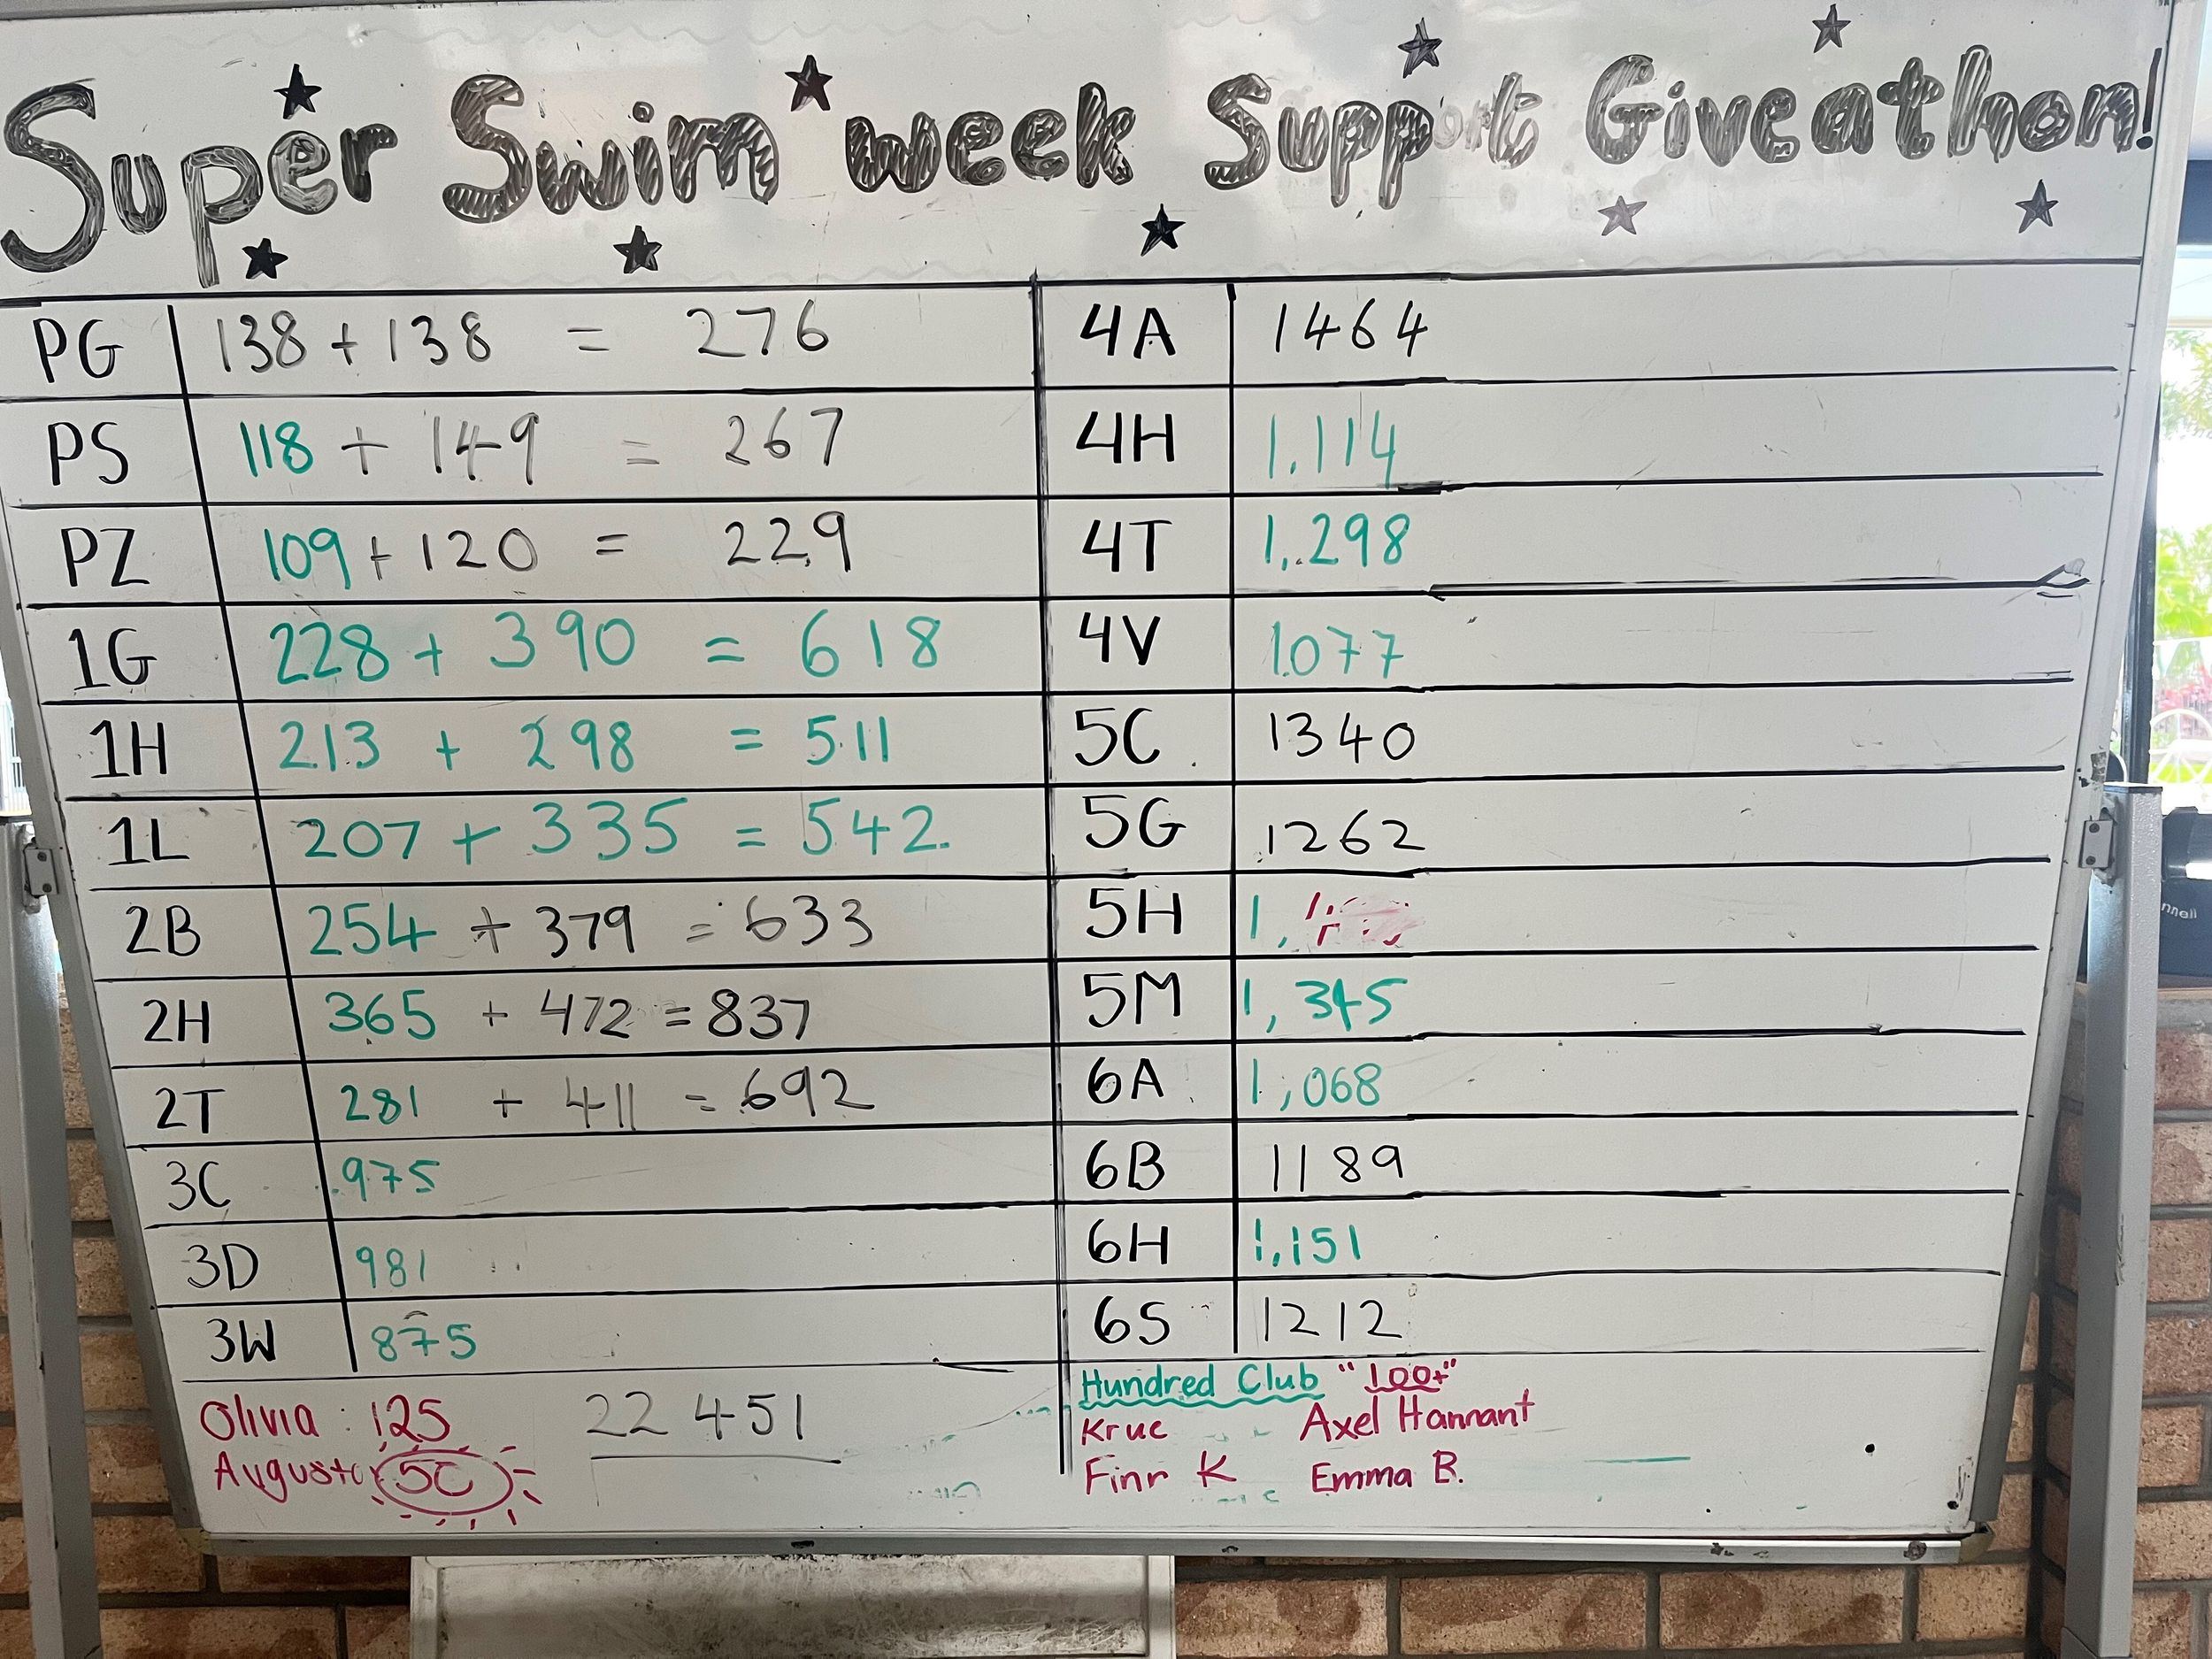 Super Swim week Support Giveathon!
PG 138 + 138 = 276
PS 118 + 149 = 267
PZ 109 + 120 = 229
1G 228 + 390 = 618
1H 213 + 298 = 511
1L 207 + 335 = 542.
2B 254 + 379 = 633
2H 365 + 472 = 837
2T 281 + 411 = 692
3C 975
3D 981
3W 875
Olivia : 125
22 451
4A 1464
4H 1,114
4T 1,298
4V 1077
5C 1340
5G 1262
5H 1,
5M 1,345
6A 1,068
6B 1189
6H 1,151
6S 1212
Hundred Club "100+"
Axel Hannant
K Emma B.